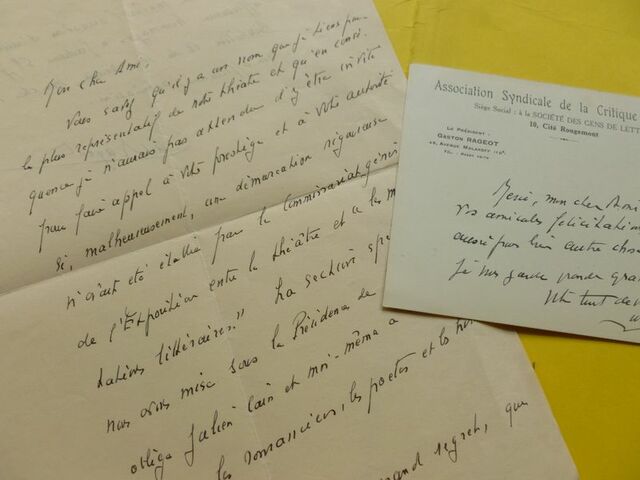 Mon cher Ami,
Vous savez qu'il y a un nom que je tiens pour
le plus représentatif de notre théâtre et qu'en consé-
quence je n'aurais pas attendu d'y être invité
pour faire appel à votre prestige et à votre autorité
si, malheureusement, une démarcation rigoureuse
n'avait été établie par le Commissariat génér
de l'Exposition entre le théâtre et "les m
tations littéraires." La section
nous avons mise sous la Présidence de
oblige Julien Cain et moi-même à
les romanciers, les poètes et les
grand regret, que
Association Syndicale de la Critique
Siège Social : à la SOCIÉTÉ DES GENS DE LETT
10, Cité Rougemont
LE PRÉSIDENT :
GASTON RAGEOT
AVENUE MALAKOFF
Merci, mon cher Ami
vos amicales félicitation
autre chose
Je
Votre tout dev